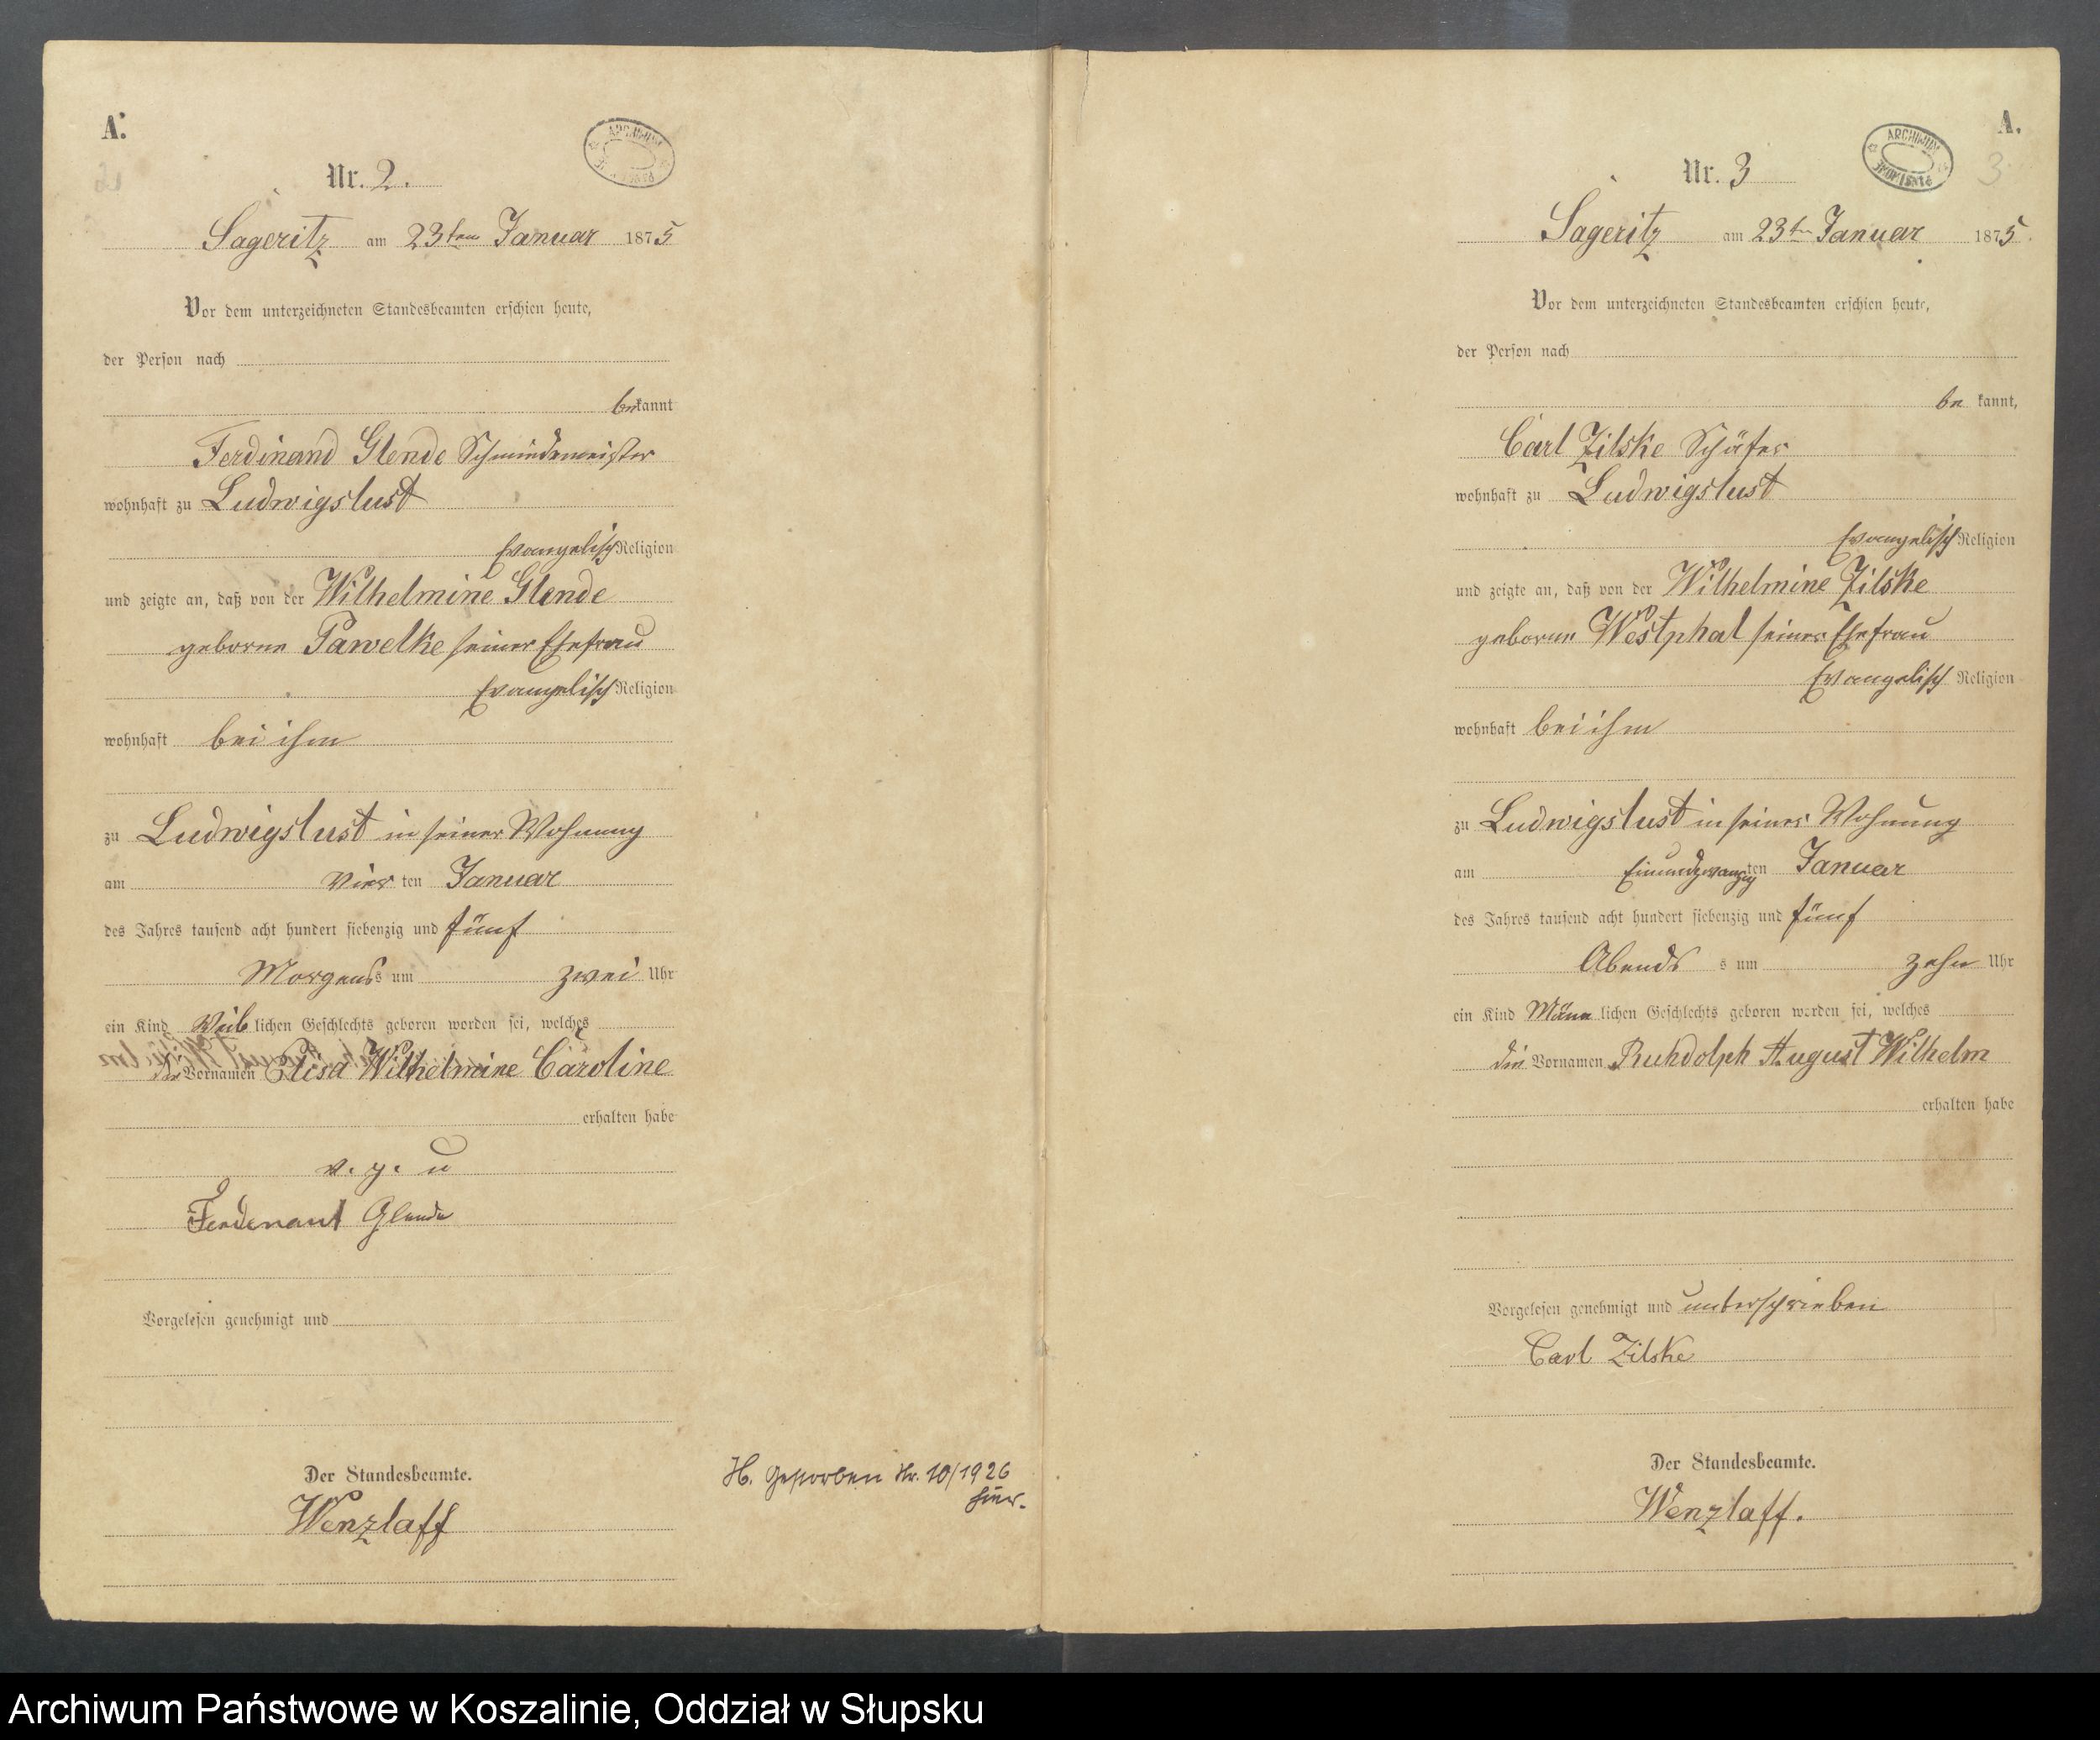 A.
Nr. 2.
Sageritz am 23ten Januar 1875
Vor dem unterzeichneten Standesbeamten erschien heute,
der Person nach
bekannt
Ferdinand Glende Schmiedemeister
wohnhaft zu Ludwigslust
Evangelisch Religion
und zeigte an, daß von der Wilhelmine Glende
geborne Pawelke seiner Ehefrau
Evangelisch Religion
wohnhaft bei ihm
zu Ludwigslust in seiner Wohnung
am Vier ten Januar
des Jahres tausend acht hundert siebenzig und fünf
Morgens um zwei Uhr
ein Kind Weib lichen Geschlechts geboren worden sei, welches
die Vornamen Elisa Wilhelmine Caroline
erhalten habe
v. g. u
Ferdenant Glende
Vorgelesen genehmigt und
Der Standesbeamte.
Wenzlaff
H. Gestorben Nr. 10/1926
hier.
A.
ARCHIWUM
3
Nr. 3
Sageritz am 23ten Januar 1875.
Vor dem unterzeichneten Standesbeamten erschien heute,
der Person nach
be kannt,
Carl Zilske Schäfer
wohnhaft zu Ludwigslust
Evangelisch Religion
und zeigte an, daß von der Wilhelmine Zilske
geborne Westphal seiner Ehefrau
Evangelisch Religion
wohnhaft bei ihm
zu Ludwigslust in seiner Wohnung
am Einundzwanzig ten Januar
des Jahres tausend acht hundert siebenzig und fünf
Abends s um zehn Uhr
ein Kind Männ lichen Geschlechts geboren worden sei, welches
die Vornamen Ruhdolph August Wilhelm
erhalten habe
Vorgelesen genehmigt und unterschrieben
Carl Zilske
Der Standesbeamte.
Wenzlaff.
Archiwum Państwowe w Koszalinie, Oddział w Słupsku